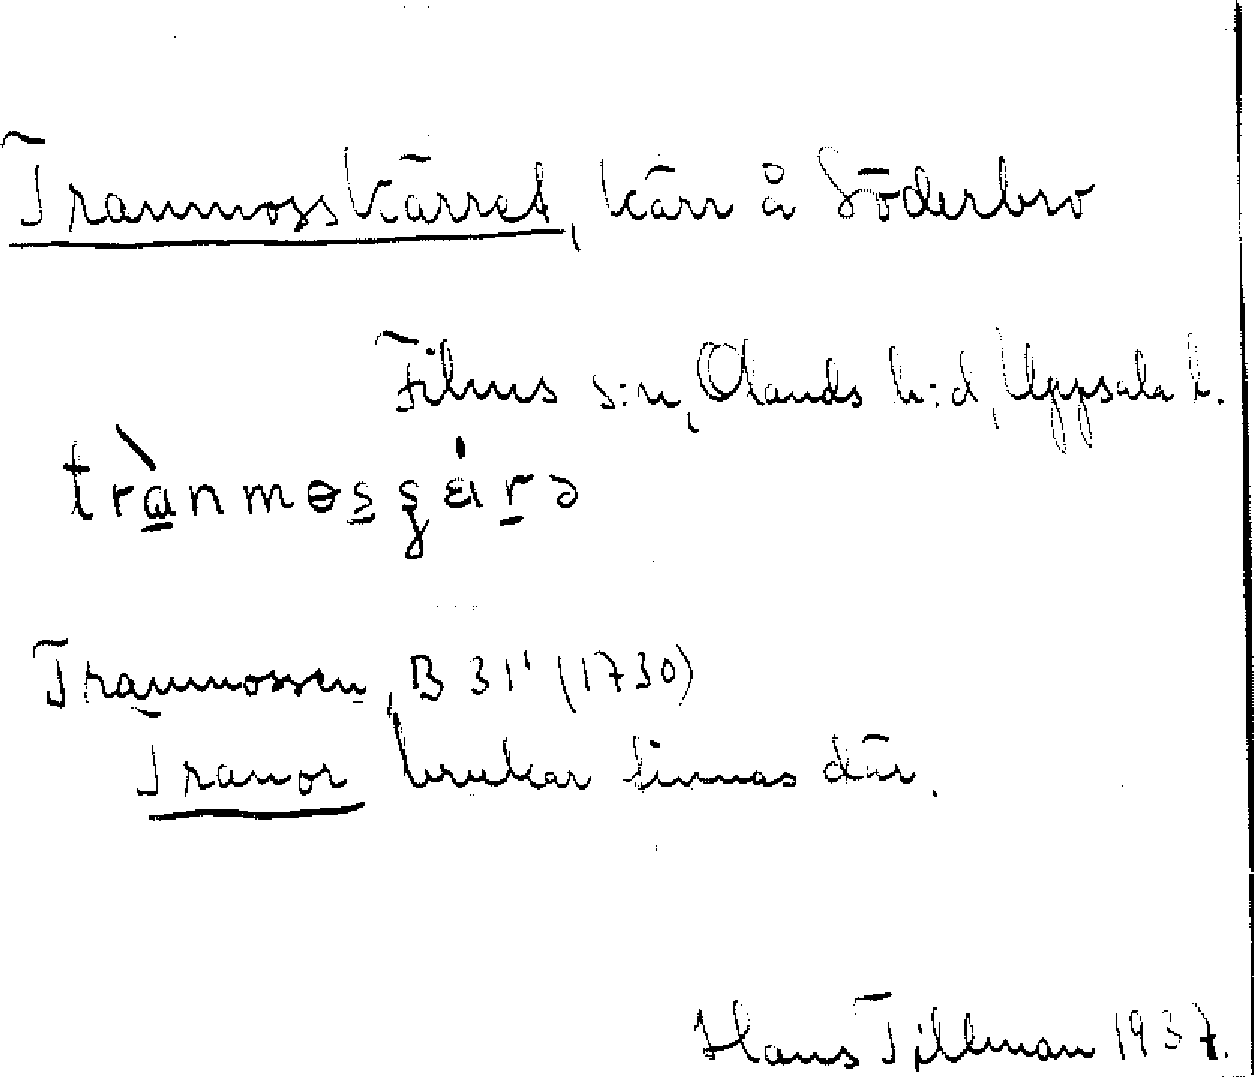 Tranmosskärret, kärr å Söderbro
Films s:n, Olands h:d, Uppsala l.
Tranmossen, B 31¹ (1730)
Tranor brukar finnas där.
Hans Tillman 1937.